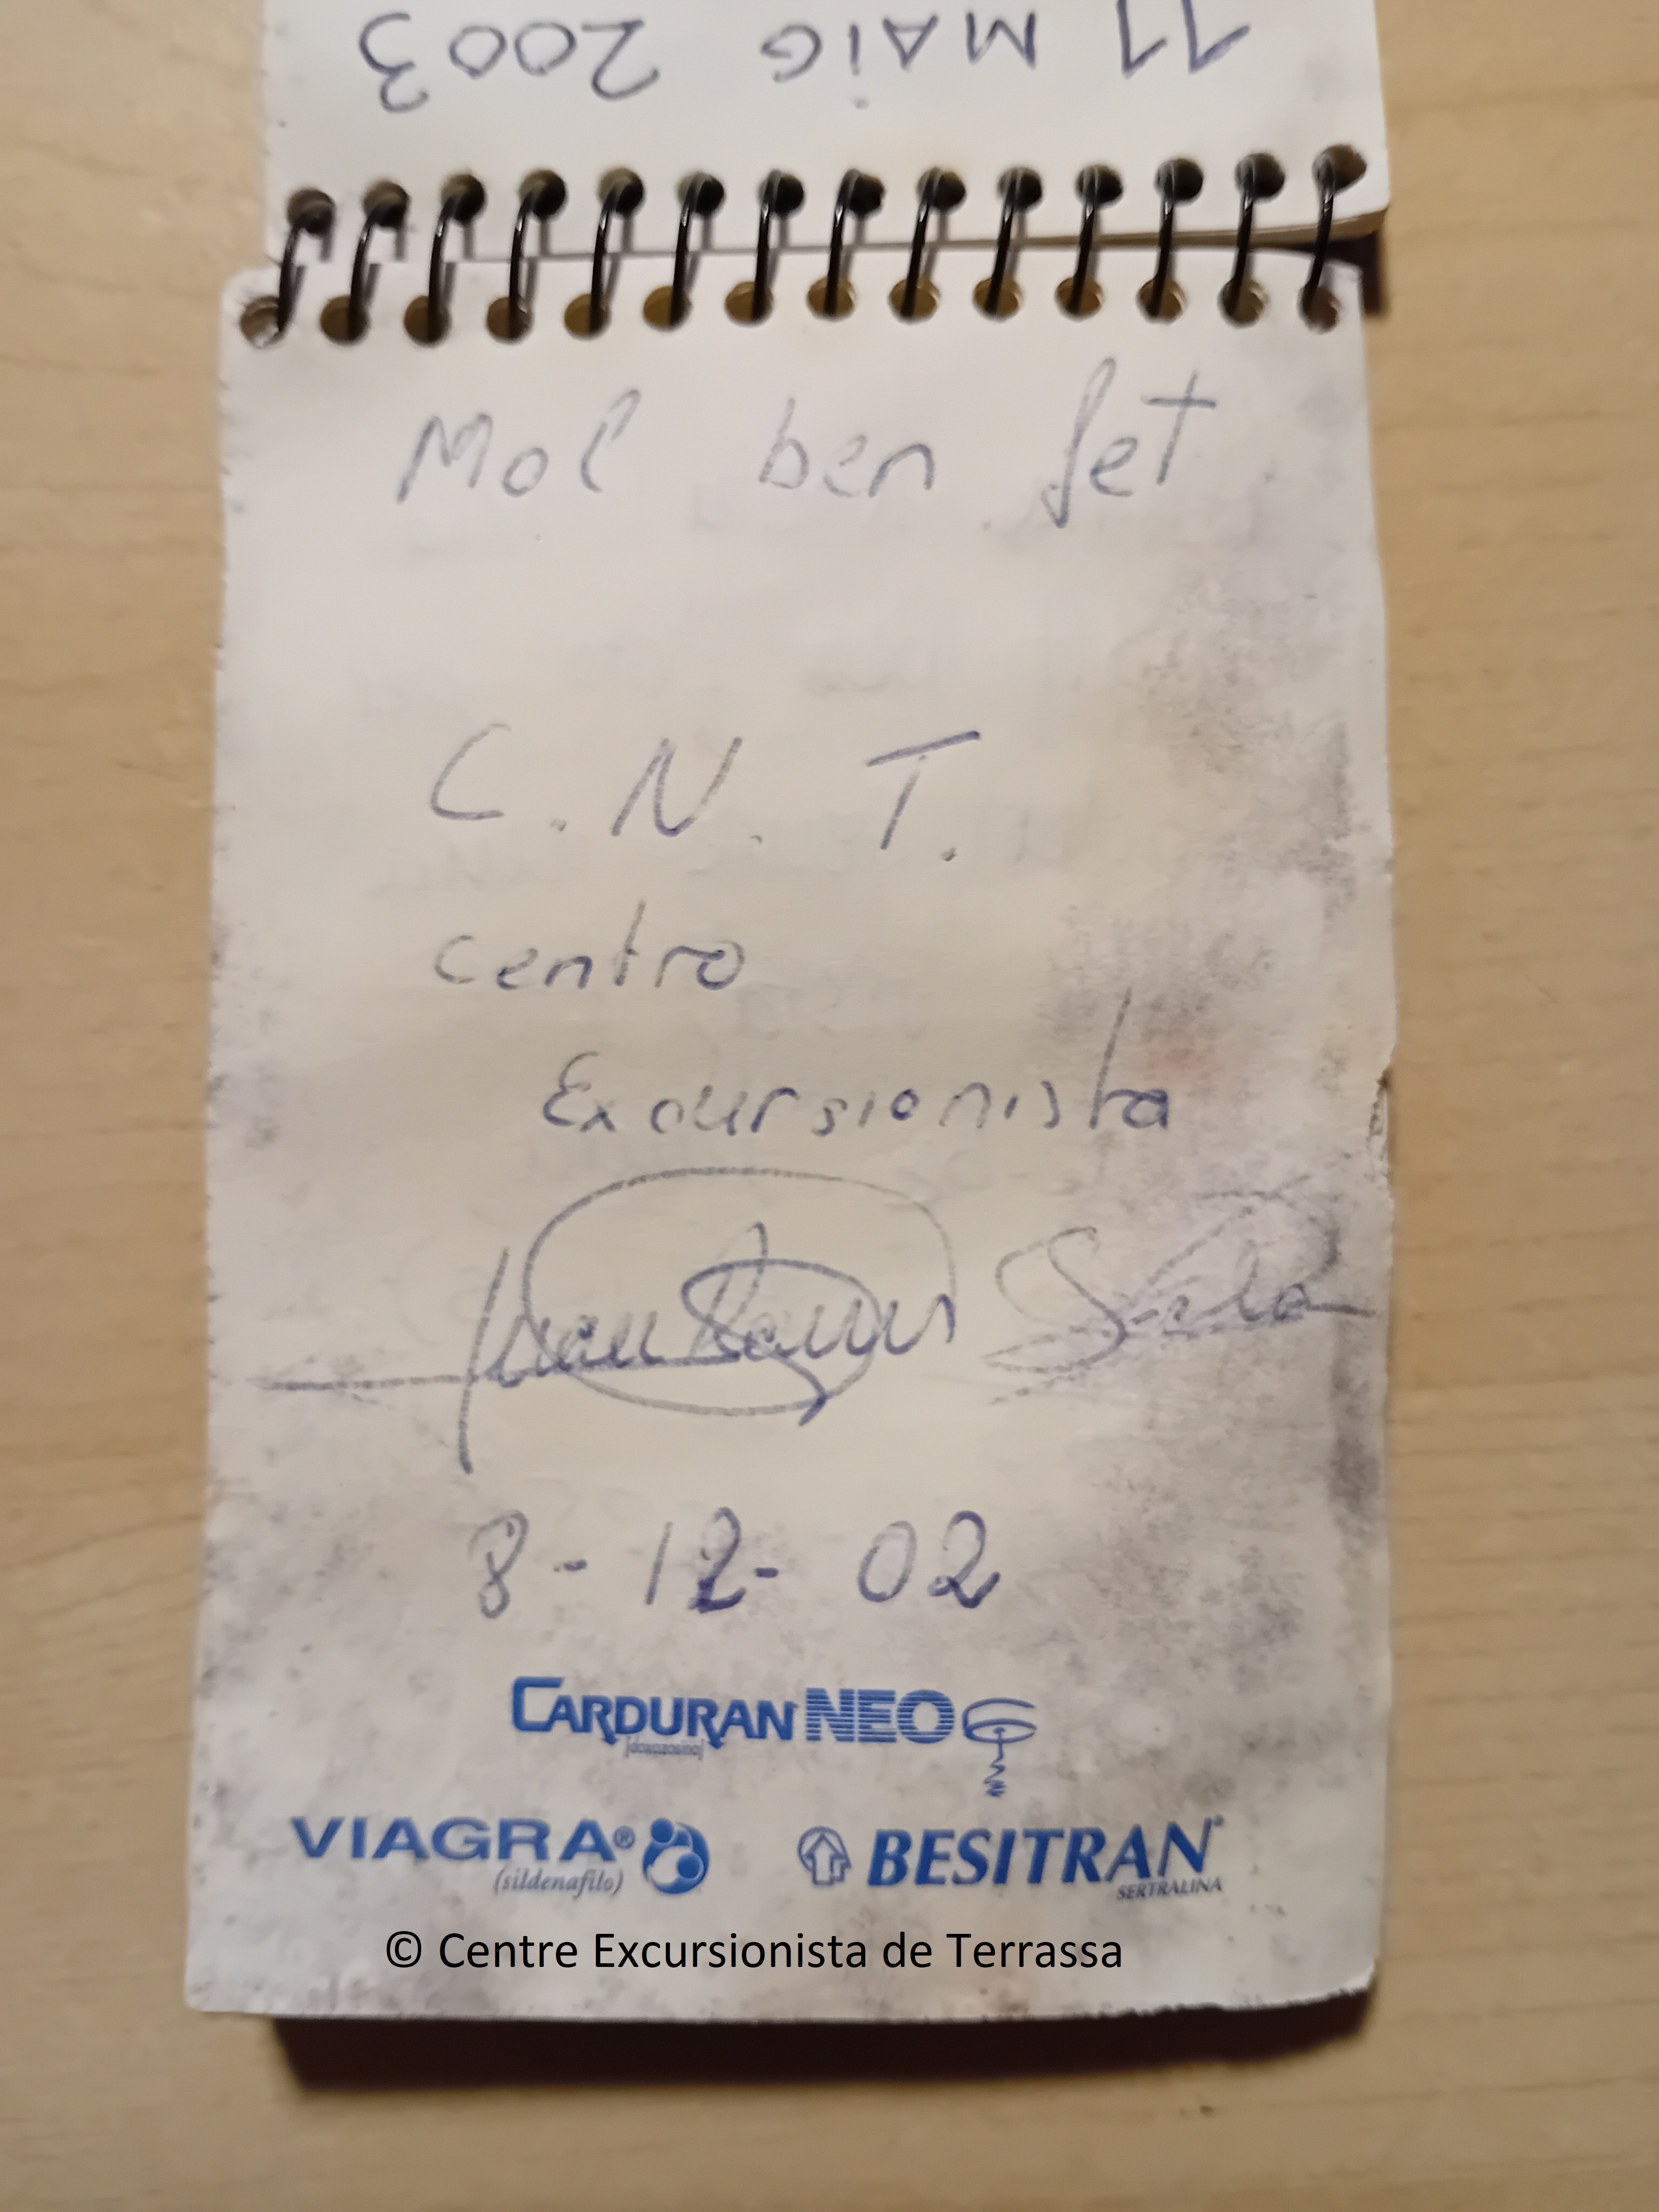 11 MAIG 2003
Mol ben fet
C. N. T.
centro
Excursionista
8-12-02
CARDURAN NEO
(doxazosina)
VIAGRA® BESITRAN®
(sildenafilo) SERTRALINA
© Centre Excursionista de Terrassa